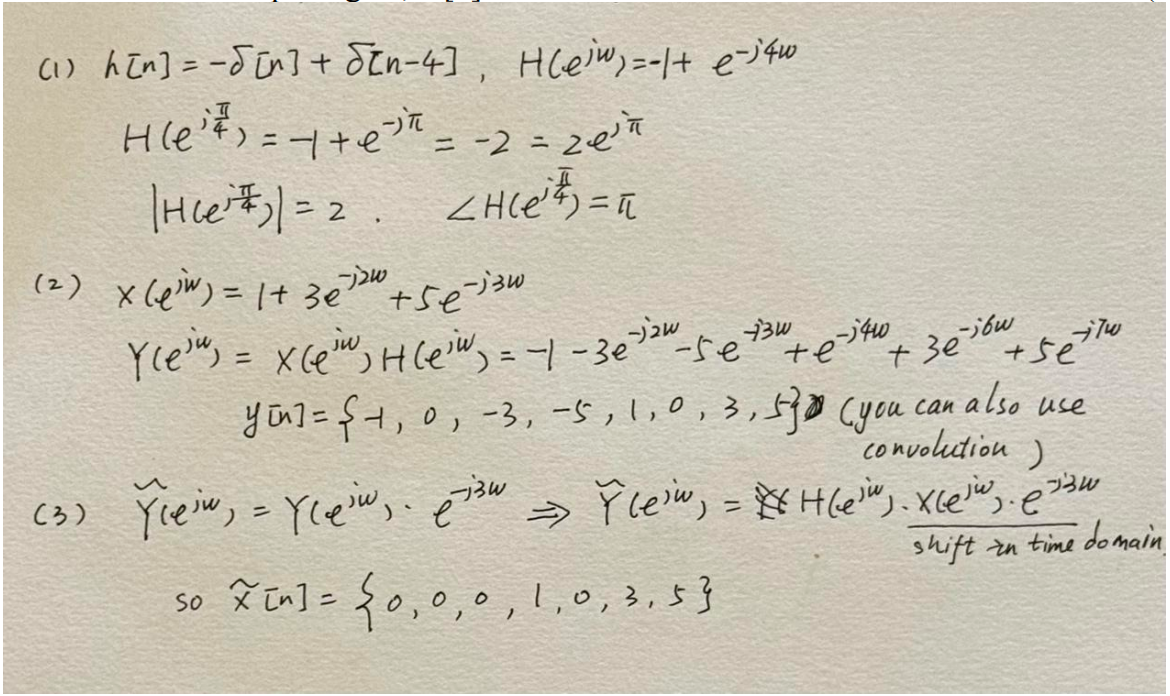 (1) h[n] = -δ[n] + δ[n-4] , H(e^{jw}) = -1 + e^{-j4w}
H(e^{j\frac{π}{4}}) = -1 + e^{-jπ} = -2 = 2e^{jπ}
|H(e^{j\frac{π}{4}})| = 2 . ∠H(e^{j\frac{π}{4}}) = π
(2) X(e^{jw}) = 1 + 3e^{-j2w} + 5e^{-j3w}
Y(e^{jw}) = X(e^{jw}) H(e^{jw}) = -1 - 3e^{-j2w} - 5e^{-j3w} + e^{-j4w} + 3e^{-j6w} + 5e^{-j7w}
y[n] = {-1, 0, -3, -5, 1, 0, 3, 5} (you can also use
convolution )
(3) Ỹ(e^{jw}) = Y(e^{jw}) · e^{-j3w} ⇒ Ỹ(e^{jw}) = H(e^{jw}) · X(e^{jw}) · e^{-j3w}
shift in time domain.
so x̃[n] = {0, 0, 0, 1, 0, 3, 5}